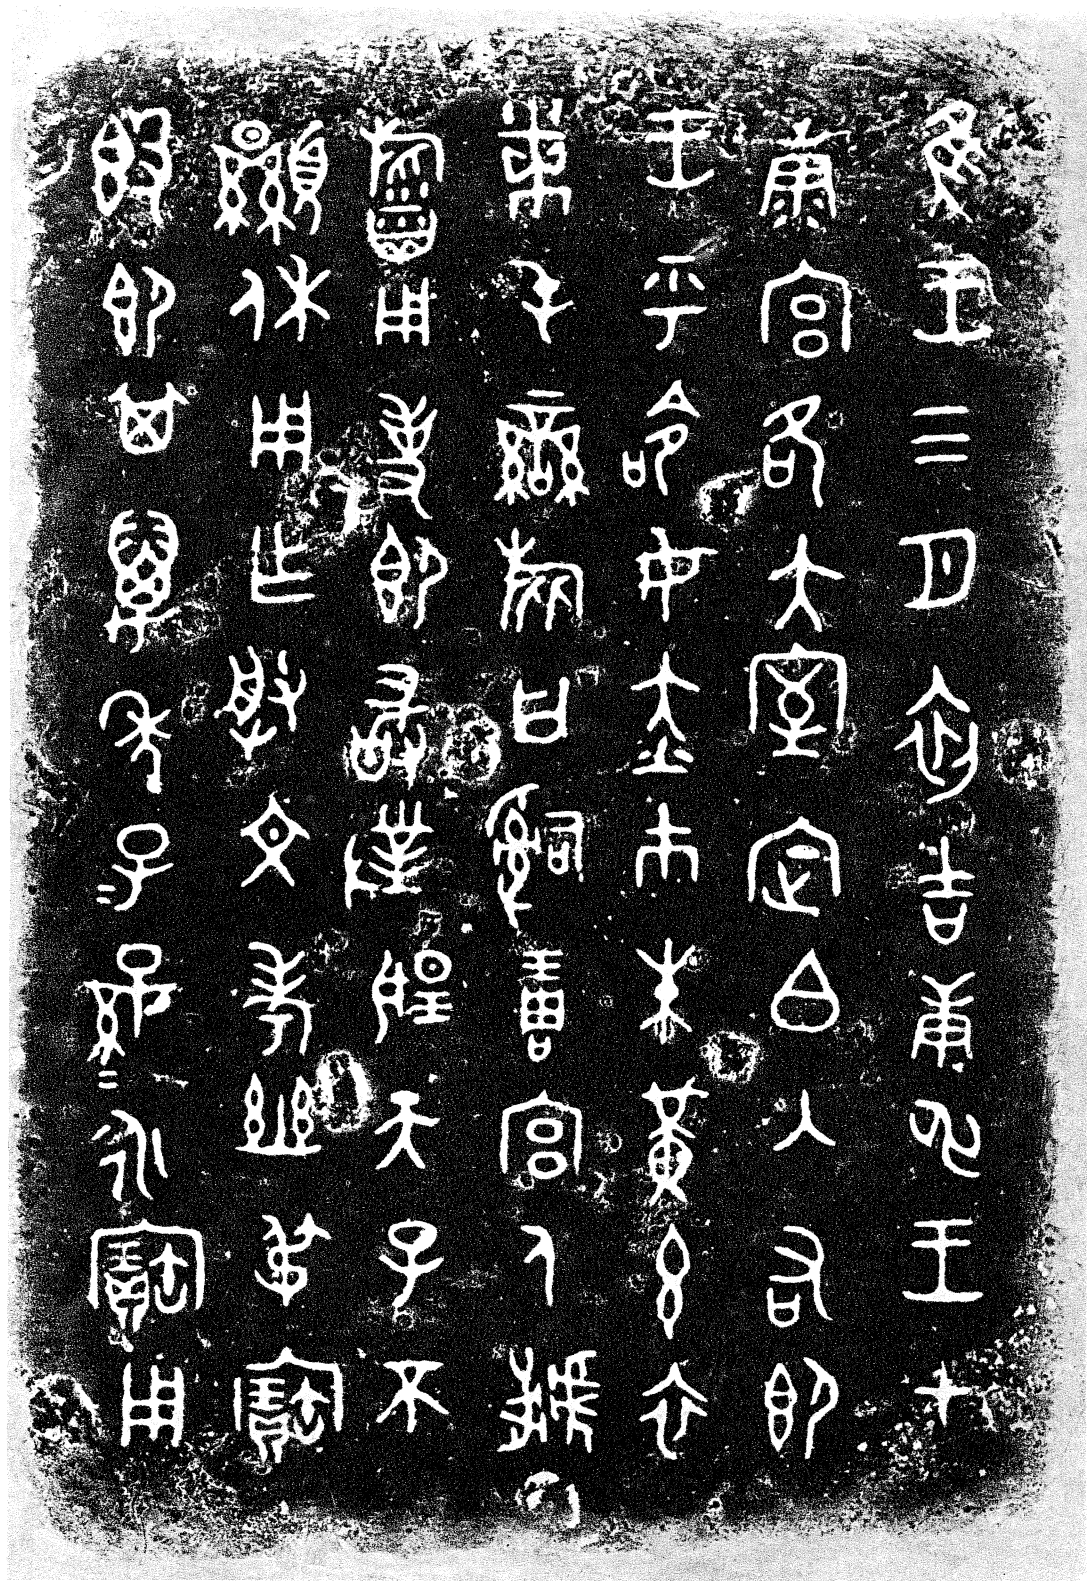 隹王三月初吉庚申王才
康宮各大室定白入右即
王乎命女赤巿朱黃玄衣
黹屯䜌旂曰𤔲琱宮人虢
稻用事即敢對揚天子不
顯休用乍朕文考幽弔寶
𣪘即其萬年子=孫=永寶用